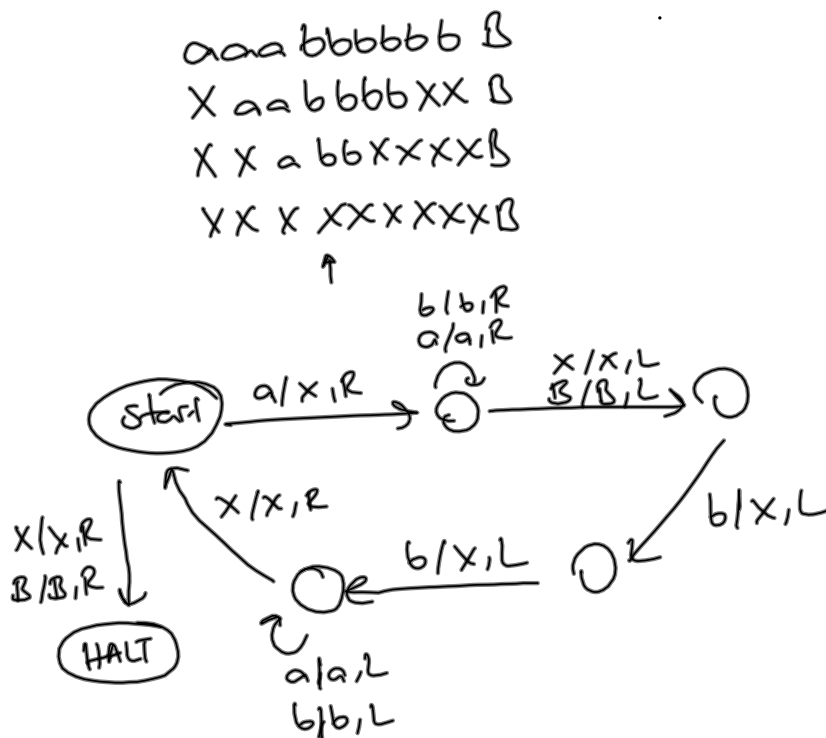 aaabbbbbbB
XaabbbbXXB
XXabbXXXXB
XXXXXXXXXB
b/b,R
a/a,R
X/X,L
B/B,L
a/X,R
start
b/X,L
X/X,R
b/X,L
X/X,R
B/B,R
HALT
a/a,L
b/b,L